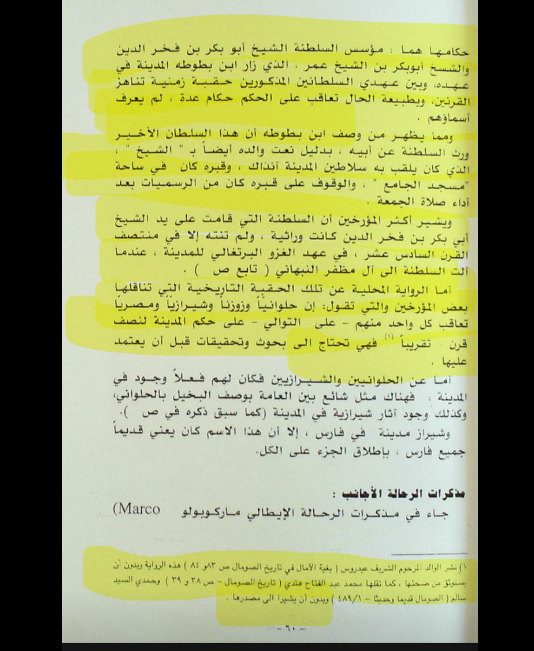 حكامها هما : مؤسس السلطنة الشيخ أبو بكر بن فخر الدين
والشيخ أبوبكر بن الشيخ عمر ، الذي زار ابن بطوطه المدينة في
عهده، وبين عهدي السلطانين المذكورين حقبة زمنية تناهز
القرنين، وبطبيعة الحال تعاقب على الحكم حكام عدة ، لم يعرف
أسماؤهم .
ومما يظهر من وصف ابن بطوطه أن هذا السلطان الأخير
ورث السلطنة عن أبيه ، بدليل نعت والده أيضاً بـ " الشيخ " ،
الذي كان يلقب به سلاطين المدينة آنذاك ، وقبره كان في ساحة
"مسجد الجامع" ، والوقوف على قبره كان من الرسميات بعد
أداء صلاة الجمعة .
ويشير أكثر المؤرخين أن السلطنة التي قامت على يد الشيخ
أبي بكر بن فخر الدين كانت وراثية ، ولم تنته إلا في منتصف
القرن السادس عشر ، في عهد الغزو البرتغالي للمدينة ، عندما
آلت السلطنة الى آل مظفر النبهاني ( تابع ص ) .
أما الرواية المحلية عن تلك الحقبة التاريخية التي تناقلها
بعض المؤرخين والتي تقول: إن حلوانياً وزوزناً وشيرازياً ومصرياً
تعاقب كل واحد منهم - على التوالي - على حكم المدينة لنصف
قرن تقريباً (١) فهي تحتاج الى بحوث وتحقيقات قبل أن يعتمد
عليها .
أما عن الحلوانيين والشيرازيين فكان لهم فعلاً وجود في
المدينة ، فهناك مثل شائع بين العامة بوصف البخيل بالحلواني،
وكذلك وجود آثار شيرازية في المدينة (كما سبق ذكره في ص ).
وشيراز مدينة في فارس ، إلا أن هذا الاسم كان يعني قديماً
جميع فارس ، بإطلاق الجزء على الكل.
مذكرات الرحالة الأجانب :
جاء في مذكرات الرحالة الإيطالي ماركوبولو (Marco
١) نشر الوالد المرحوم الشريف عيدروس ( بغية الآمال في تاريخ الصومال ص ٨٣و ٨٤ ) هذه الرواية وبدون أن
يستوثق من صحتها ، كما نقلها محمد عبد الفتاح هندي ( تاريخ الصومال – ص ٣٨ و ٣٩ ) وحمدي السيد
سالم ( الصومال قديما وحديثا – ٤٨٩/١ ) وبدون أن يشيرا الى مصدرها .
- ٦٠ -